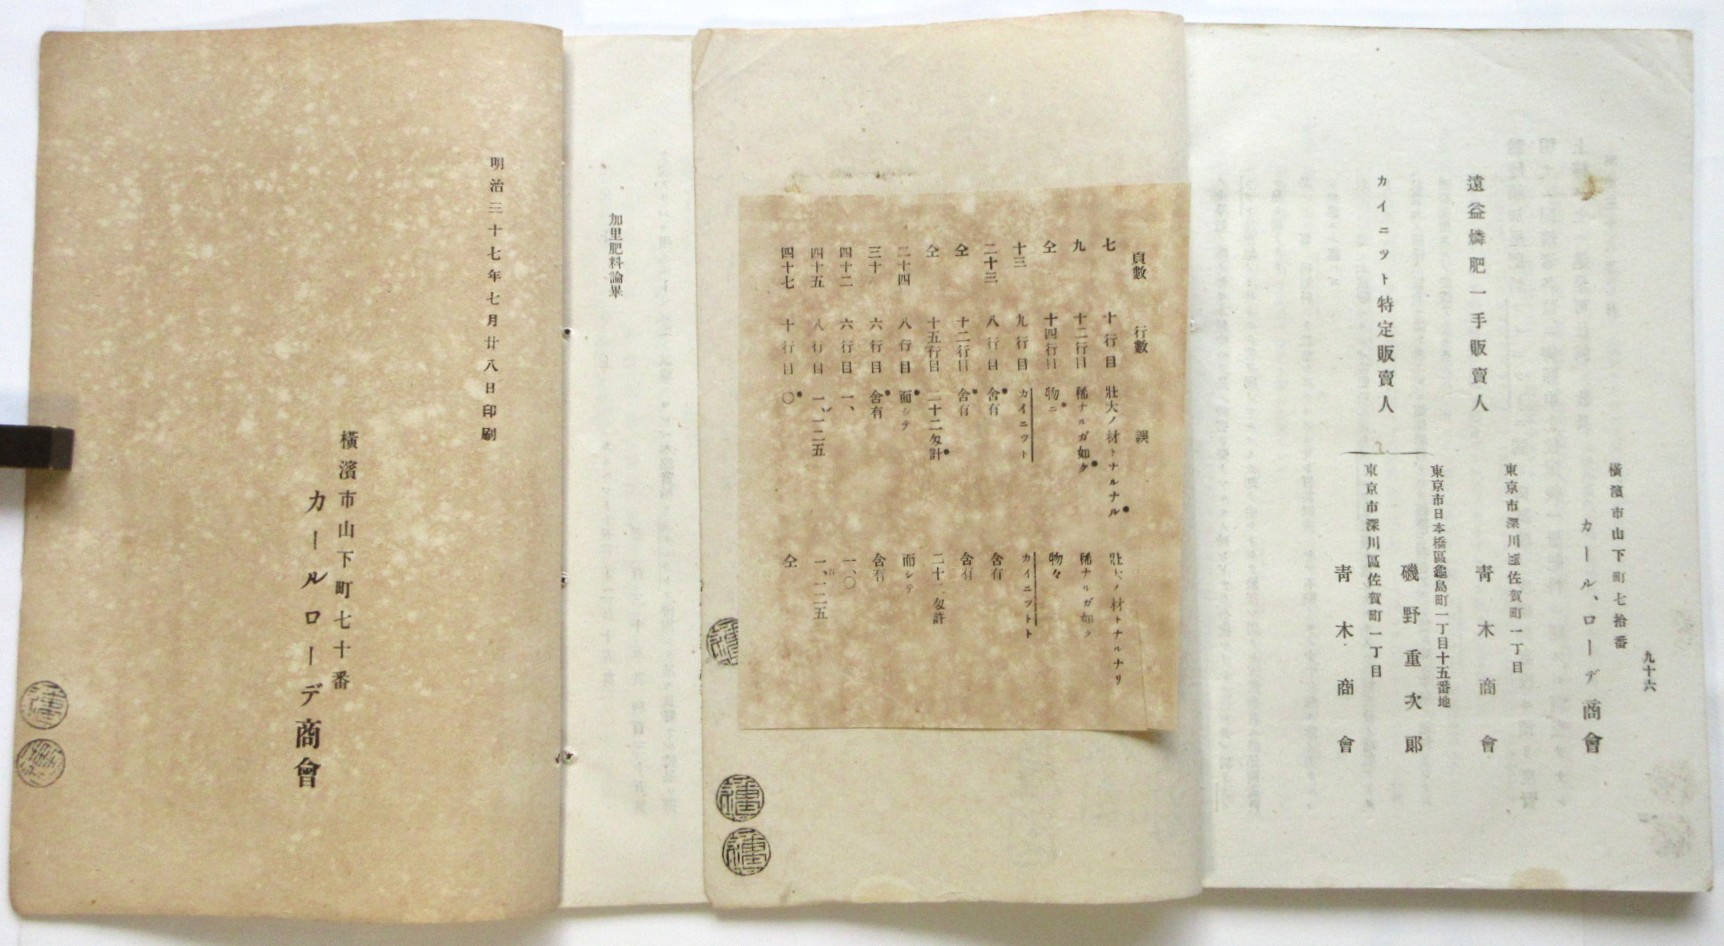 九十六
橫濱市山下町七拾番
カール、ローデ商會
遠益燐肥一手販賣人
東京市深川區佐賀町一丁目
靑木商會
カイニツト特定販賣人
東京市日本橋區龜島町一丁目十五番地
磯野重次郞
東京市深川區佐賀町一丁目
靑木商會
頁數 行數 誤
七 十行目 壯大ノ材トナルナル 壯大ノ材トナルナリ
九 十二行目 稀ナルガ如ク 稀ナルガ如ク
仝 十四行目 物ニ 物々
十三 九行目 カイニツト カイニツトト
二十三 八行目 舍有 含有
仝 十二行目 舍有 含有
仝 十五行目 二十二匁計 二十二匁許
二十四 八行目 面シテ 而シテ
三十 六行目 舍有 含有
四十二 六行目 一、 一、〇
四十五 八行目 一、一二五 一、一二五
四十七 十行目 〇 仝
加里肥料論畢
明治三十七年七月廿八日印刷
橫濱市山下町七十番
カールローデ商會